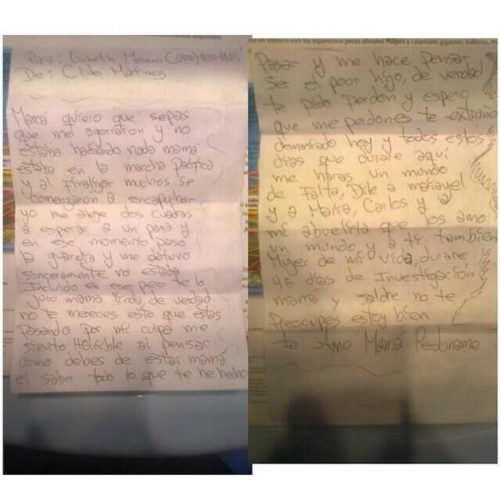 Para: Lisbeth Moreno
De: Martinez
Mamá quiero que sepas
que me agarraron y no
estaba haciendo nada mama
estaba en la marcha Pacífica
y al finalizar muchos se
comenzaron a encapuchar
yo me aleje dos cuadras
a esperar a un pana y
en ese momento paso
la guardia y me detuvo
sinceramente no estaba
Incluido en eso pero te lo
juro mama linda, de verdad
no te mereces esto que estas
Pasando por mi culpa me
siento Horrible al pensar
como debes de estar mamá
el saber todo lo que te he hecho
Pasar y me hace Pensar
Ser el peor hijo, de verdad
te pido Perdón y espero
que me perdones te extraño
demasiado hoy y todos estos
dias que durare aqui
me haras un mundo
de Falta, Dile a
y a Maria, Carlos y a
mi abuelita que los amo
un mundo y a ti tambien
Mujer de mi vida, durare
45 dias de Investigacion
mama y saldre no te
Preocupes estoy bien
te Amo Mamá Perdoname